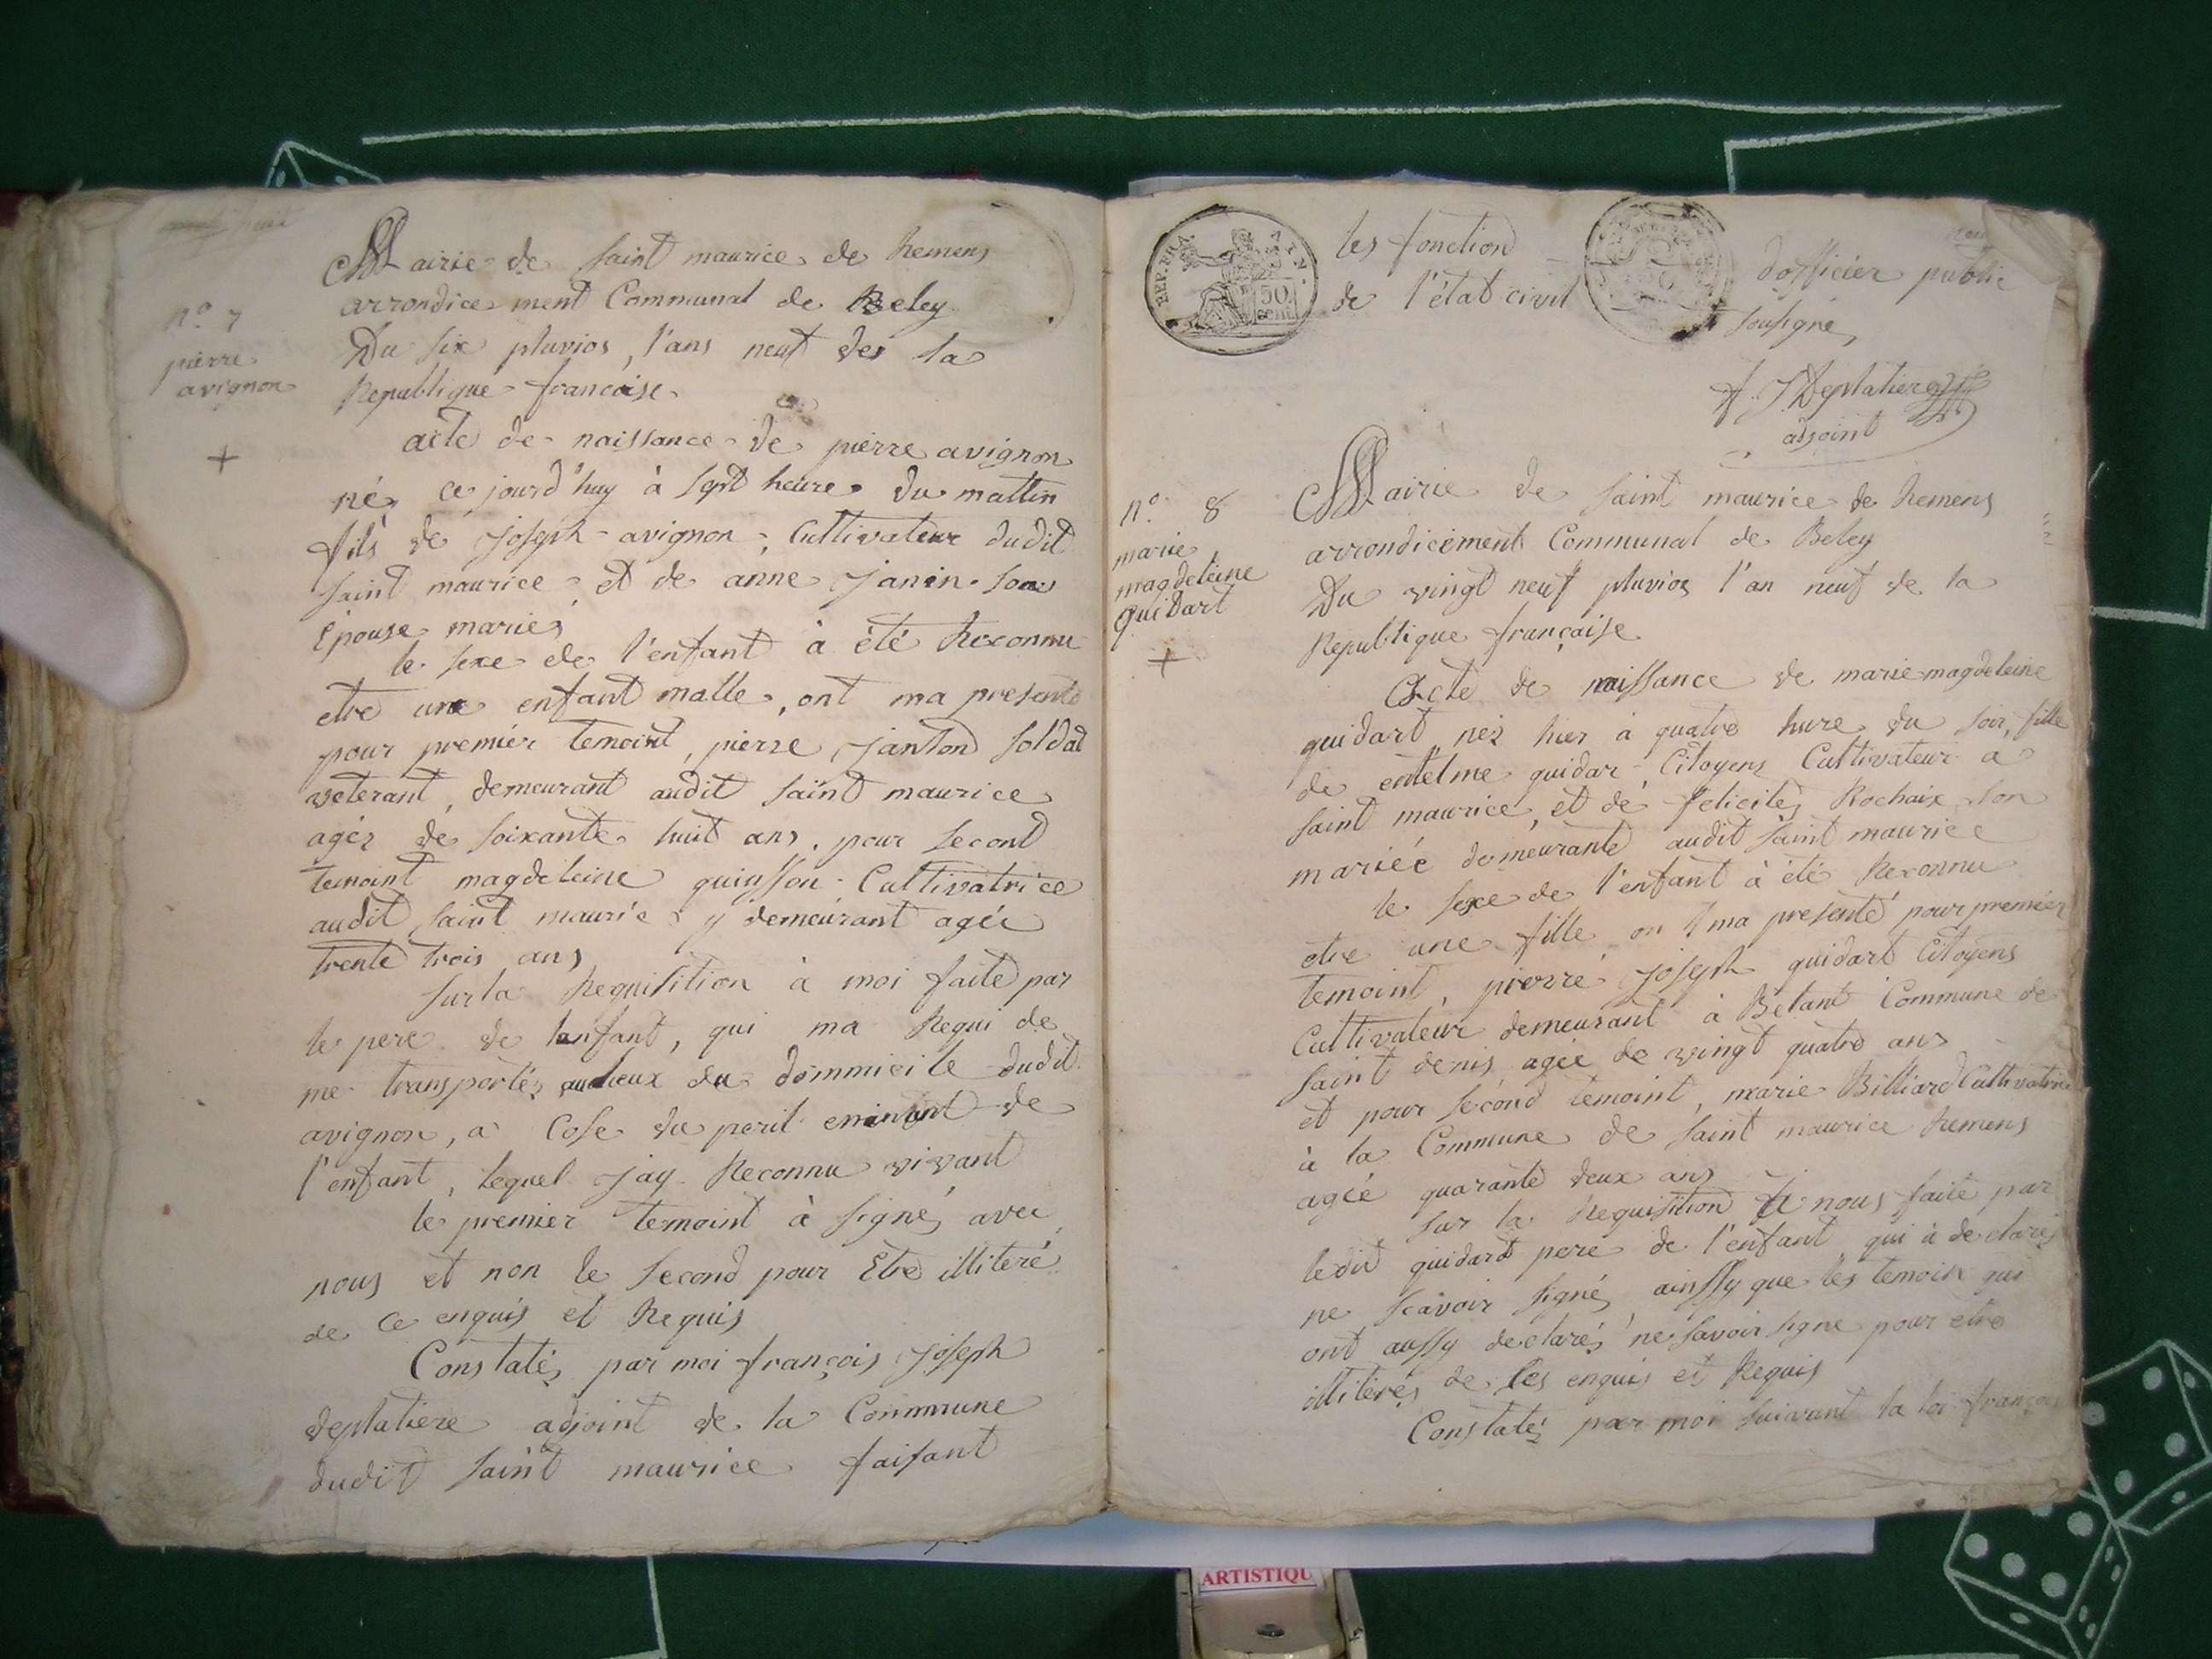 Mairie de saint maurice de Remens
arrondice ment Communal de Beley
Du six pluvios, l'ans neuf des la
Republique francoise
n.o 7
pierre
avignon
+
acte de naissance de pierre avignon
né ce jourd'huy à sept heure du mattin
fils de joseph avignon, Cultivateur dudit
saint maurice et de anne janin son
épouse mariés
le sexe de l'enfant à été Reconnu
etre une enfant malle, ont ma presenté
pour premier temoint, pierre janton soldat
veterant, demeurant audit saint maurice
agér de soixante huit ans, pour secont
temoint magdeleine quinsson Cultivatrice
audit saint maurice y demeurant agéé
trente trois ans
sur la Requisition à moi faite par
le pere de lenfant, qui ma Requi de
me transportés audieux du dommicile dudit
avignon, a Cose du peril eminant de
l'enfant, lequel jay Reconnu vivant
le premier temoint à signé, avec
nous et non le second pour Etre illiteré
de ce enquis et Requis
Constatés par moi françois joseph
deplatiere adjoint de la Commune
dudit saint maurice faisant
REP. FRA. 50 cent.
les fonction dofficier public
de l'état civil sousigné
f. J Deplatiere
adjoint
n.o 8
marie
magdeleine
guidart
+
Mairie de saint maurice de Remens
arrondicement Communal de Beley
Du vingt neuf pluvios l'an neuf de la
Republique française
Acte de naissance de marie magdeleine
guidart néz hier à quatre hure du soir, fille
de entelme guidar, Citoyens Cultivateur a
saint maurice, et de felicités Rochaix son
mariéé demeurante audit saint maurice
le sexe de l'enfant à été Reconnu
etre une fille on t ma presenté pour premier
temoint, pierre joseph guidart Citoyens
Cultivateur demeurant à Bétant Commune de
saint denis agéé de vingt quatre ans
et pour second temoint, marie Billiard Cultivatrice
à la Commune de saint maurice Remens
agéé quarante deux ans
sur la Requisition à nous faite par
ledit guidart pere de l'enfant qui à declarés
ne scavoir signé, ainssy que les temoin qui
ont aussy declarés ne savoir signe pour etre
illiterés de les enquis et Requis
Constatés par moi suivant la loi françois
ARTISTIQU